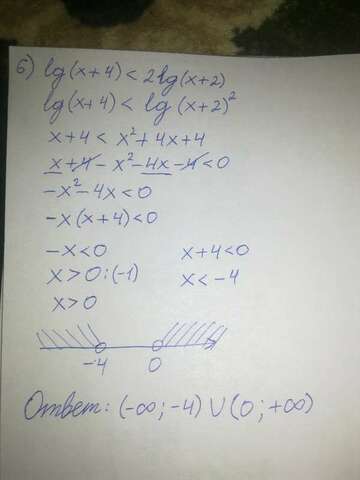 6) lg(x+4) < 2lg(x+2)
lg(x+4) < lg (x+2)²
x+4 < x²+4x+4
x+4-x²-4x-4<0
-x²-4x<0
-x(x+4)<0
-x<0 x+4<0
x>0:(-1) x<-4
x>0
-4 0
Ответ: (-∞;-4)∪(0;+∞)